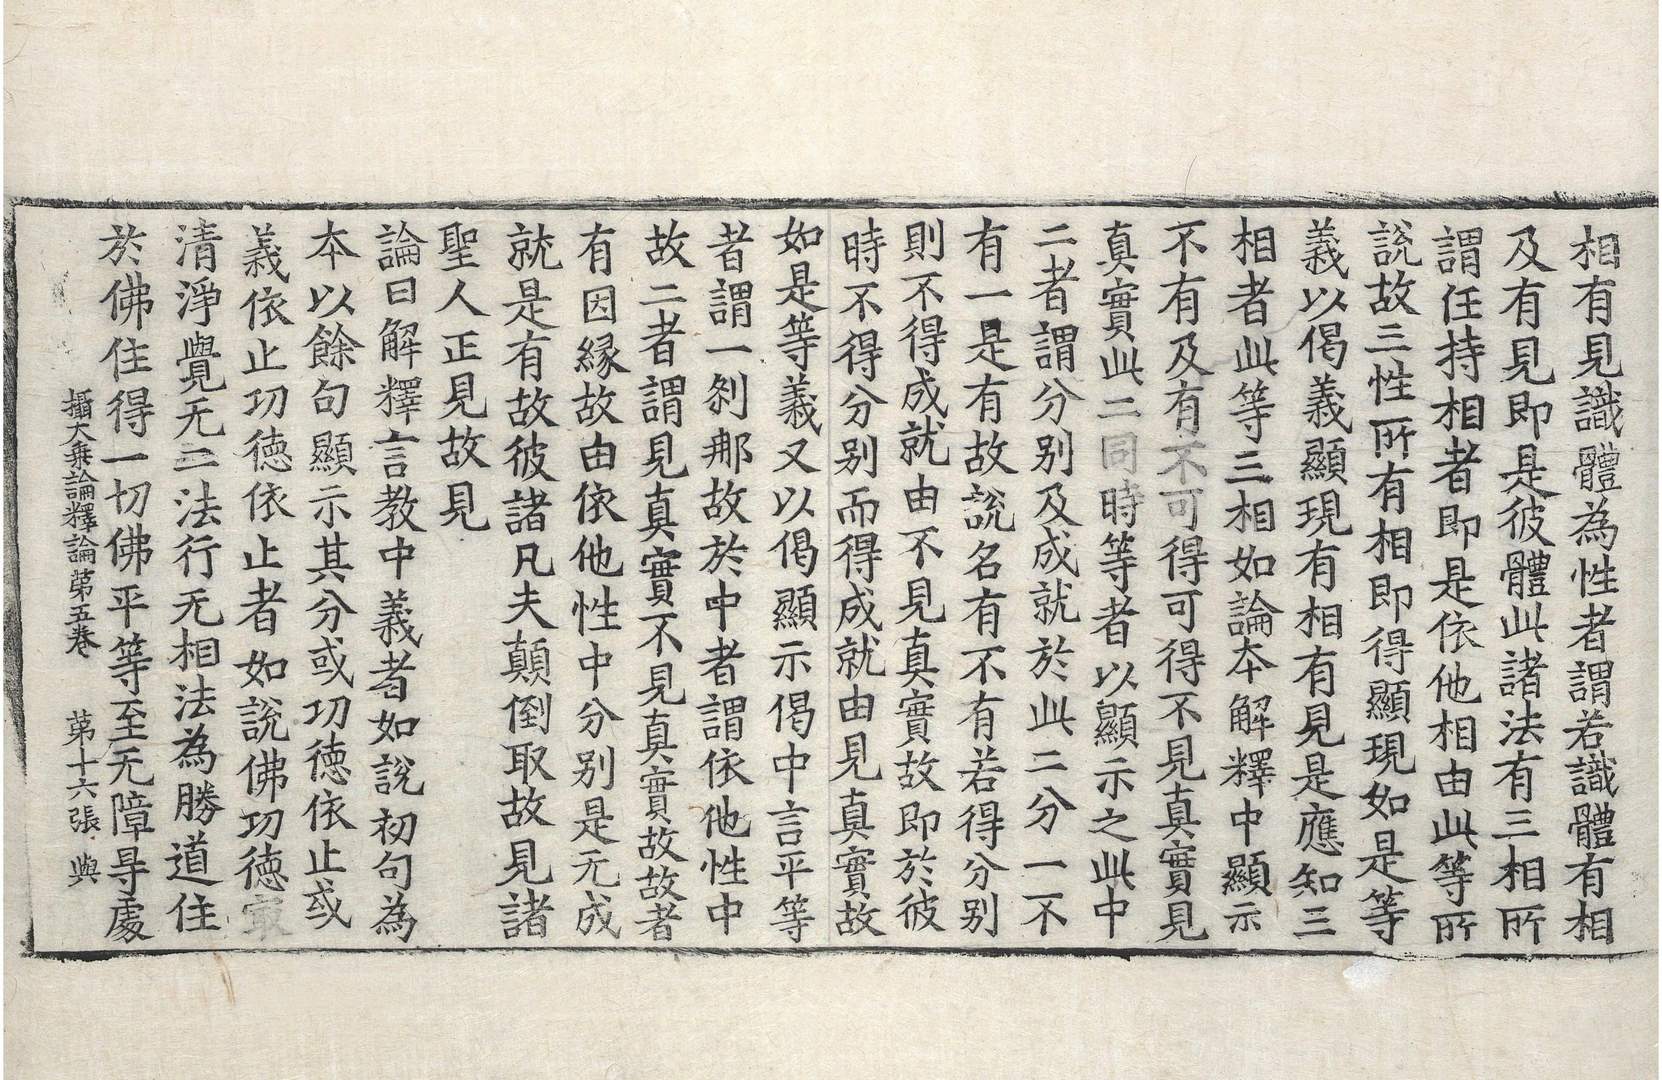 相有見識體為性者謂若識體有相
及有見即是彼體此諸法有三相所
謂任持相者即是依他相由此等所
說故三性所有相即得顯現如是等
義以偈義顯現有相有見是應知三
相者此等三相如論本解釋中顯示
不有及有不可得可得不見真實見
真實此二同時等者以顯示之此中
二者謂分別及成就於此二分一不
有一是有故說名有不有若得分別
則不得成就由不見真實故即於彼
時不得分別而得成就由見真實故
如是等義又以偈顯示偈中言平等
者謂一剎那故於中者謂依他性中
故二者謂見真實不見真實故故者
有因緣故由依他性中分別是无成
就是有故彼諸凡夫顛倒取故見諸
聖人正見故見
論曰解釋言教中義者如說初句為
本以餘句顯示其分或功德依止或
義依止功德依止者如說佛功德㝡
清淨覺无二法行无相法為勝道住
於佛住得一切佛平等至无障㝵處
攝大乘論釋論第五卷 第十六張 與